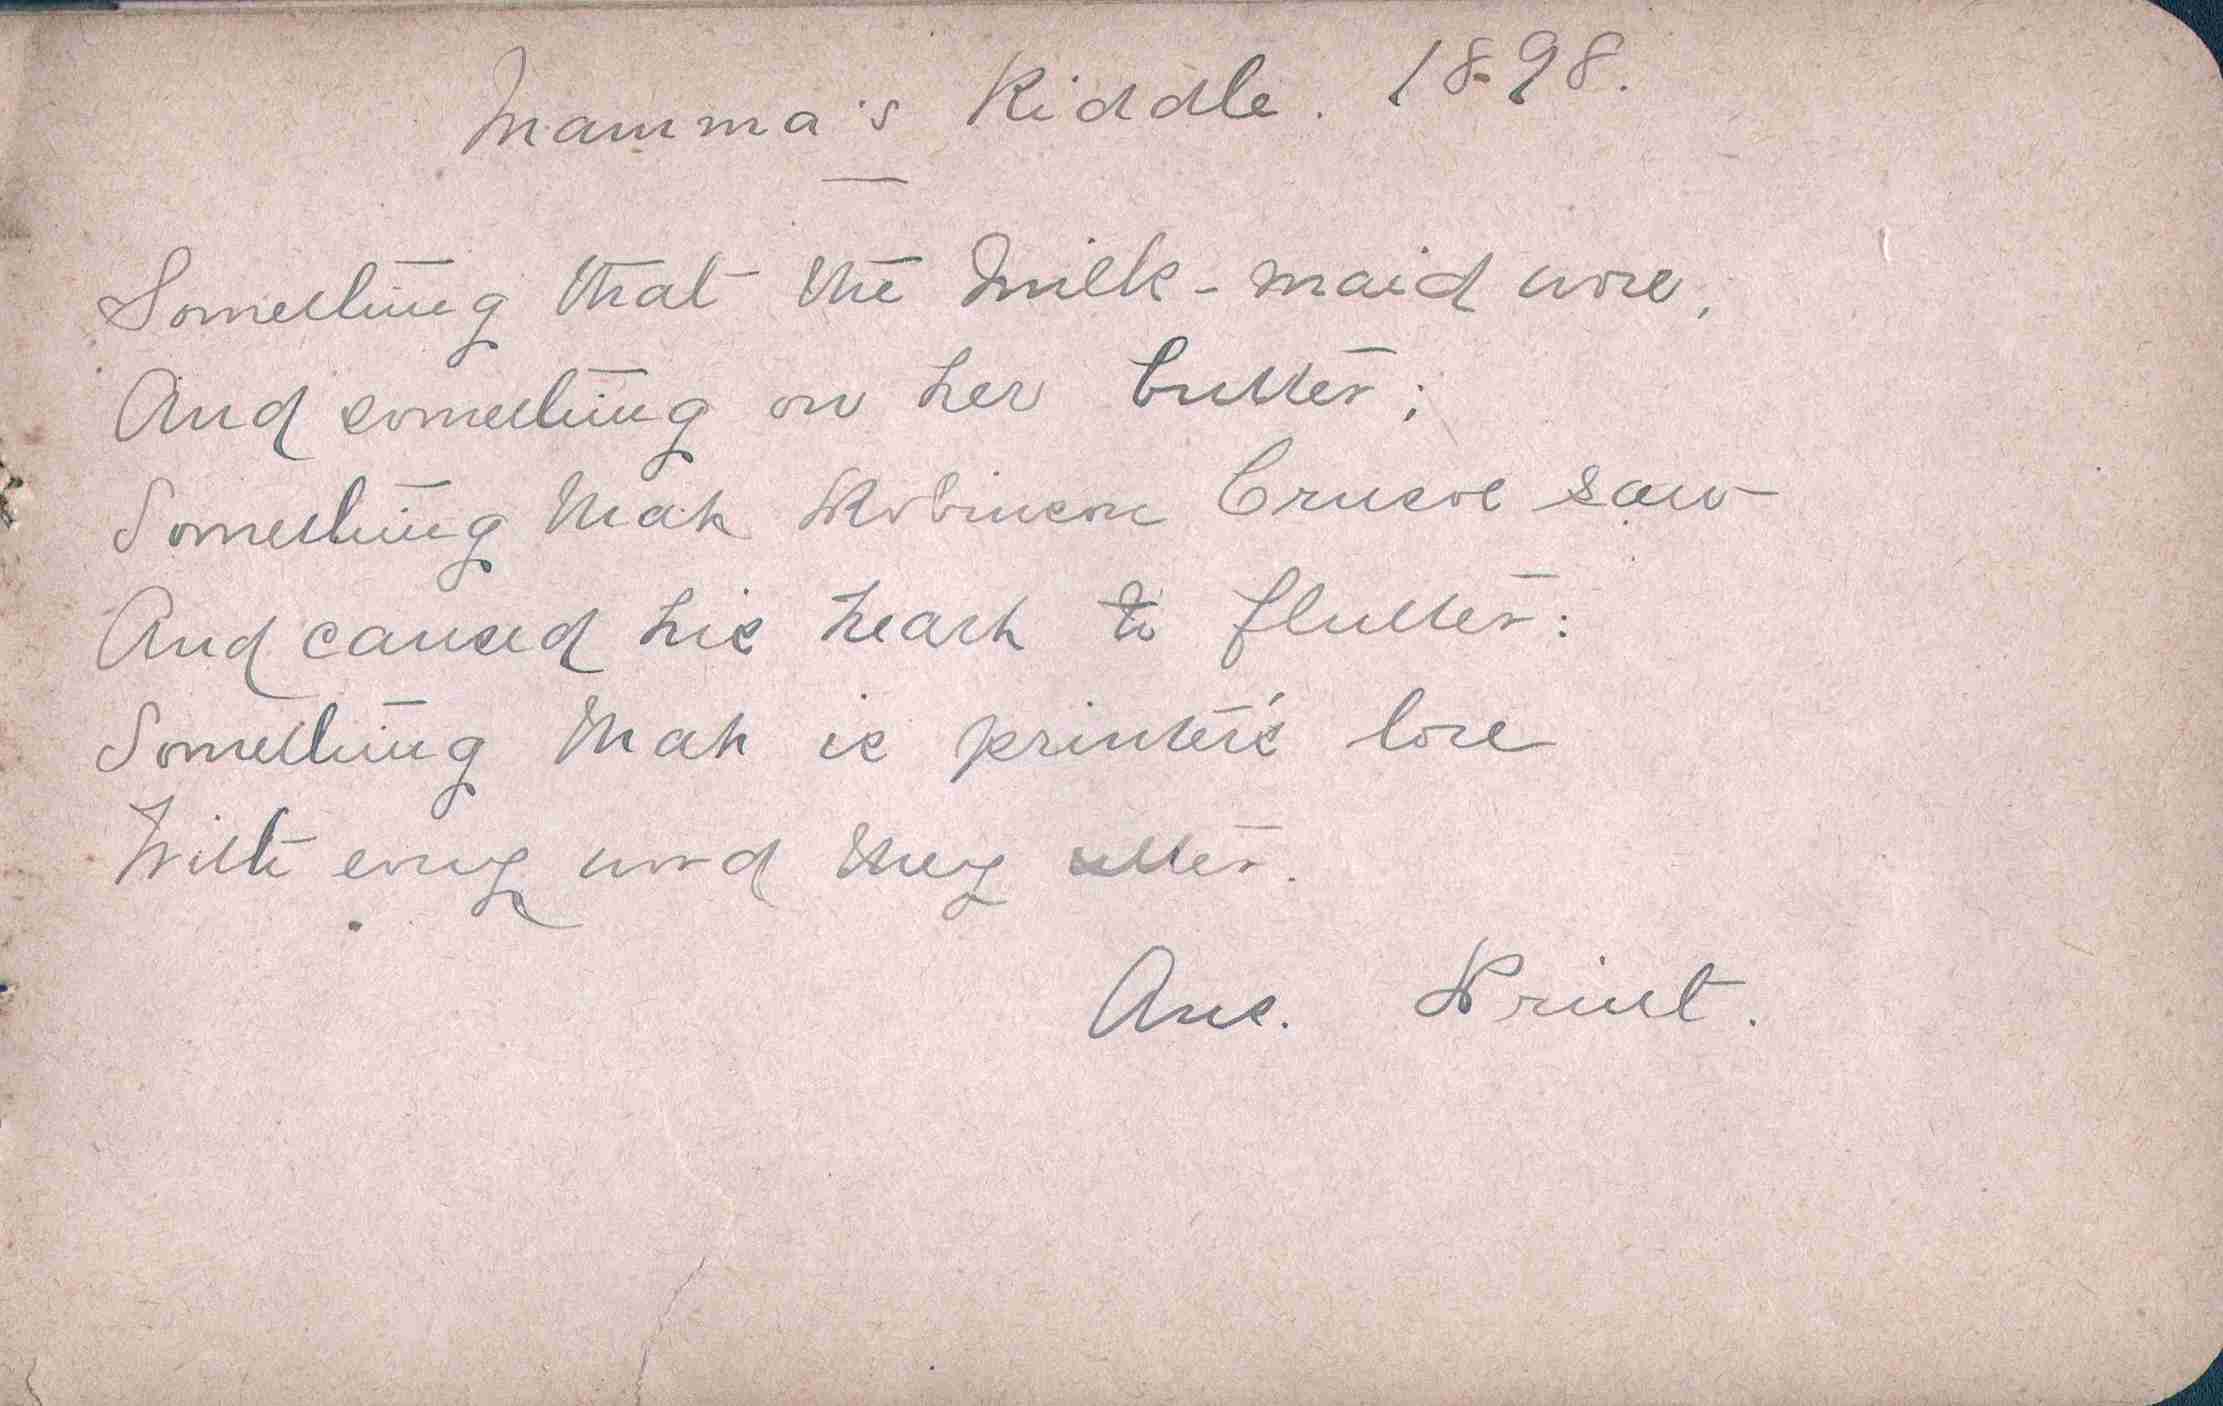 Mamma's Riddle. 1898.
Something that the Milk-maid wore,
And something on her butter;
Something that Robinson Crusoe saw
And caused his heart to flutter:
Something that is printer's lore
With every word they utter.
Ans. Print.